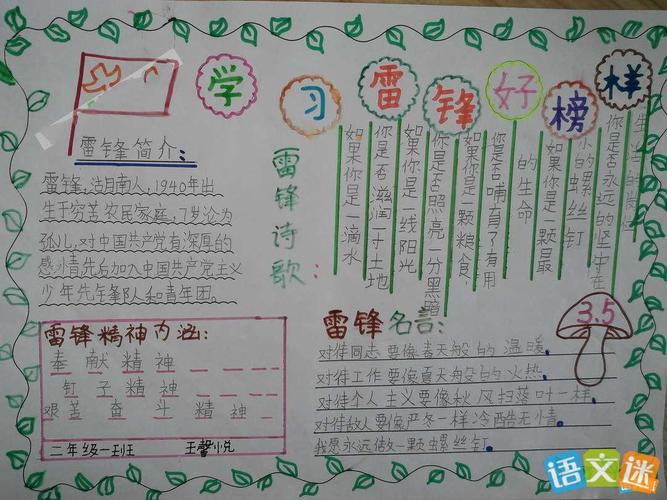 学习雷锋好榜样
雷锋简介:
雷锋,沽目南人,1940年出
生于穷苦农民家庭,7岁沦为
孤儿,对中国共产党有深厚的
感情,先后加入中国共产党主义
少年先锋队和青年团。
雷锋精神内涵:
奉献精神
钉子精神
艰苦奋斗精神
二年级一班 王馨悦
雷锋诗歌:
如果你是一滴水
你是否滋润一寸土地
如果你是一线阳光
你是否照亮一分黑暗
如果你是一颗粮食
您是否哺育了有用
的生命
如果你是一颗最
小的螺丝钉
你是否永远的坚守在
生活的岗位
雷锋名言:
对待同志要像春天般的温暖。
对待工作要像夏天般的火热。
对待个人主义要像秋风扫落叶一样。
对待敌人要像严冬一样冷酷无情。
我愿永远做一颗螺丝钉。
3.5
语文迷